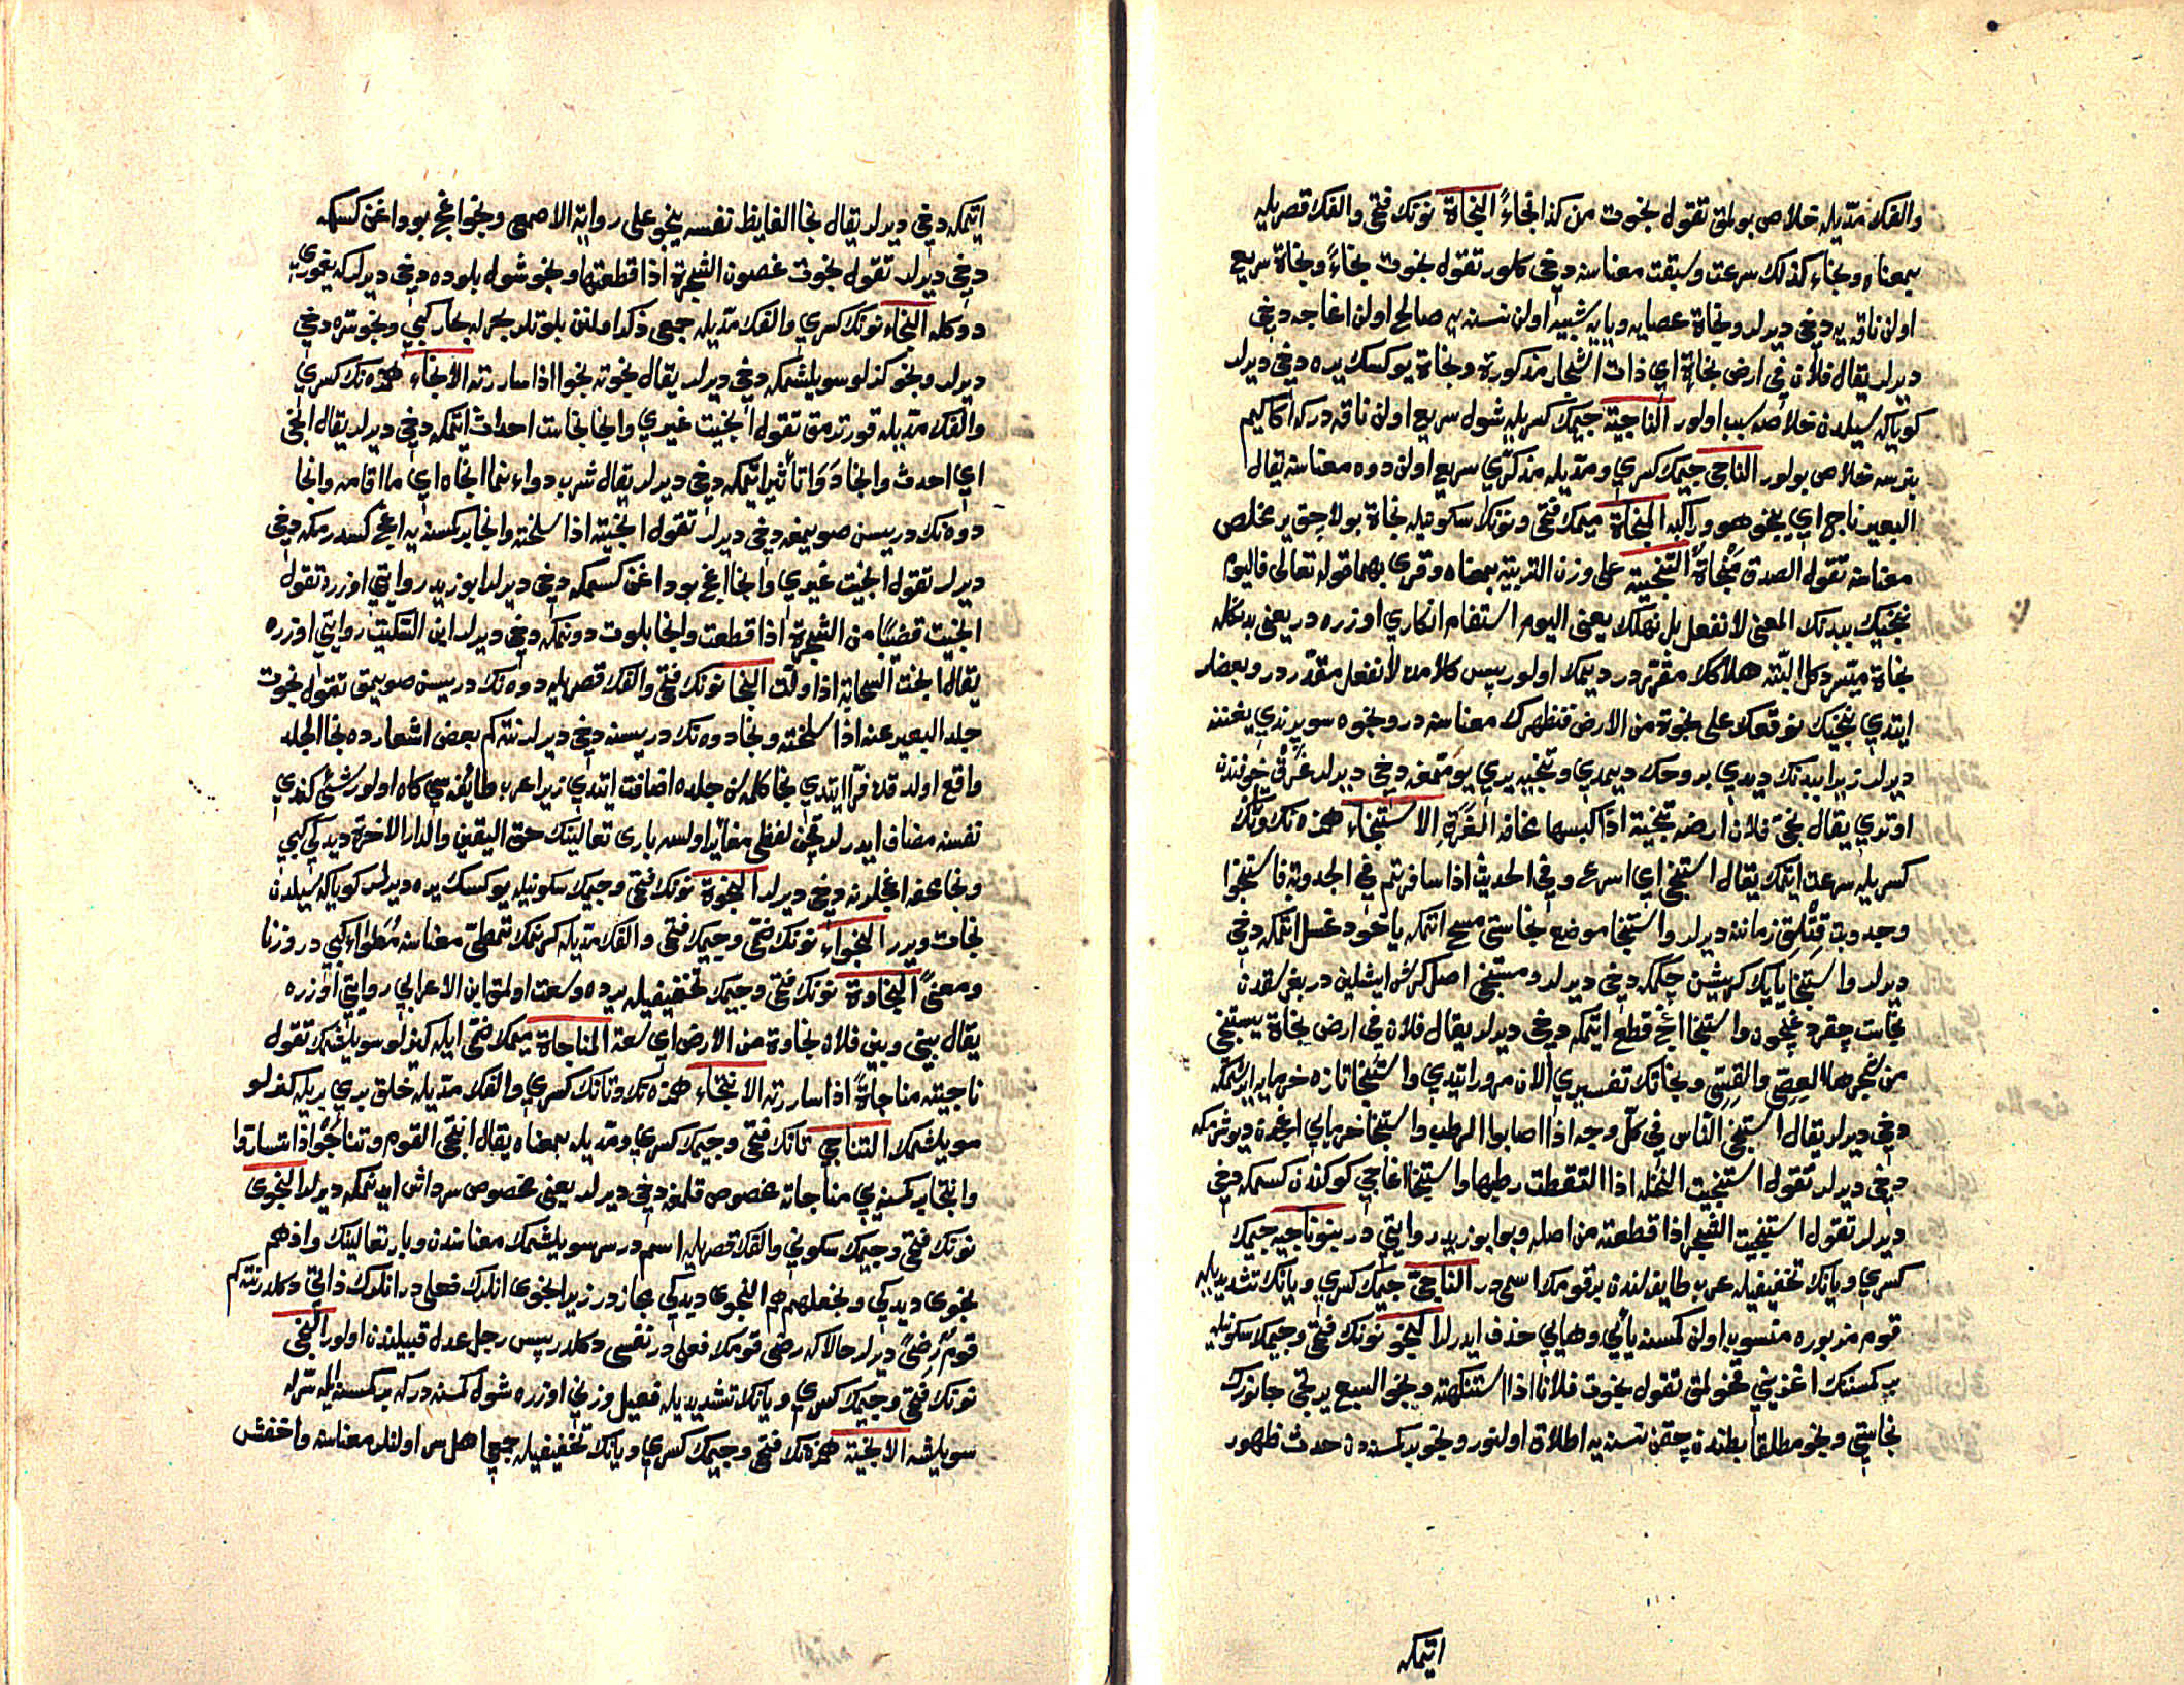 والفك مدّيله خلاص بولمق تقول نجوت من كذا نجاءً النجاة نونك فتحى والفك قصريله
بمعناه ونجاء كذلك سرعت وسبقت معناسنه دخى كلور تقول نجوت نجاءً ونجاة سريع
اولن ناقه يه دخى ديرلر ونجاة عصايه ويايه شبيه اولن نسنه يه صالح اولن اغاجه دخى
ديرلر يقال فلان فى ارض نجاة اي ذات اشجار مذكورة ونجاة يوكسك يره دخى ديرلر
كويا كه سيلدن خلاصه سبب اولور الناجية جيمك كسريله شول سريع اولن ناقه دركه اكا كيم
بنرسه خلاص بولور الناجى جيمك كسري ومدّيله مذكّري سريع اولن دوه معناسنه يقال
البعير ناج اي ينجو هو وراكبه المنجاة ميمك فتحى ونونك سكونيله نجاة بولاجق ير مخلص
معناسنه تقول الصدق منجاةٌ التنجية على وزن التربية بمعناه وقرئ بهما قوله تعالى فاليوم
ننجيك ببدنك المعنى لا نفعل بل نهلك يعنى اليوم استفهام انكاري اوزره در يعنى بدنكله
نجاة ميسّر دكل البته هلاكك مقرّر در ديمك اولور پس كلامده لا نفعل مقدّر در وبعضلر
ايتدي ننجيك نرفعك على نجوة من الارض فنظهرك معناسنه در ونجوه سويرندي يغننه
ديرلر زيرا ببدنك ديدي بروحك ديمدي وتنجيه يري يومتمغه دخى ديرلر غرق خوفندن
اوتري يقال نجّى فلان ارضه تنجية اذا كبسها مخافة الغرق الاستنجاء همزه نك وتانك
كسريله سرعت ايتمك يقال استنجى اي اسرع وفى الحديث اذا سافرتم فى الجدوبة فاستنجوا
وجدوبت قتلق زماننه ديرلر واستنجا موضع نجاستى مسح ايتمكه ياخود غسل ايتمكه دخى
ديرلر واستنجا يايك كريشن چكمكه دخى ديرلر ومستنجى اصل كرش ايشلين در بغرسقدن
نجاست چقردغيچون واستنجا اغج قطع ايتمكه دخى ديرلر يقال فلان فى ارض نجاة يستنجى
من شجرها العصىّ والقسىّ ونجانك تفسيري الان مرور ايتدي واستنجا تازه خرمايه ايرشمكه
دخى ديرلر يقال استنجى الناس فى كل وجه اذا اصابوا الرطب واستنجا خرمايي اغجدن ديوشرمكه
دخى ديرلر تقول استنجيت النخلة اذا التقطت رطبها واستنجا اغاجى كوكندن كسمكه دخى
ديرلر تقول استنجيت الشجر اذا قطعته من اصله وبو ابو زيد روايتى در بنو ناجيه جيمك
كسري ويانك تخفيفيله عرب طايفه لندن بر قومك اسمى در الناجىّ جيمك كسري ويانك تشديديله
قوم مزبوره منسوب اولن كمسنه يائي وهايي حذف ايدرلر النجو نونك فتحى وجيمك سكونيله
بر كمسنك اغزينى قوخولمق تقول نجوت فلانا اذا استنكهته ونجو السبع يرتجى جانورك
نجاستى ونجو مطلقا بطندن چقن نسنه يه اطلاق اولنور ونجو بر كمسنه دن حدث ظهور
ايتمكه
ايتمكه دخى ديرلر يقال نجا الغايط نفسه ينجو على رواية الاصمعى ونجو اغج بوداغن كسمكه
دخى ديرلر تقول نجوت غصون الشجرة اذا قطعتها ونجو شول بلوده دخى ديرلر كه يغمورى
دوكله النجاء نونك كسري والفك مدّيله جمعى ذكر اولنن بلوتلر بحر له بحار كبي ونجو ترسه دخى
ديرلر ونجو كزلو سويلشمكه دخى ديرلر يقال نجوته نجوا اذا ساررته الانجاء همزه نك كسري
والفك مدّيله قورتارمق تقول انجيت غيري وانجا نجاست احداث ايتمكه دخى ديرلر يقال انجى
اي احدث وانجا دوا تأثير ايتمكه دخى ديرلر يقال شرب دواء فما انجاه اي ما اقامه وانجا
دوه نك دريسن صويمغه دخى ديرلر تقول انجيته اذا سلخته وانجا بر كمسنه يه اغج كسدرمكه دخى
ديرلر تقول انجيت غيري وانجا اغج بوداغن كسمكه دخى ديرلر ابو زيد روايتى اوزره تقول
انجيت قضيبًا من الشجرة اذا قطعت وانجا بلوت دونمكه دخى ديرلر ابن السّكيت روايتى اوزره
يقال انجت السحابة اذا ولّت النجا نونك فتحى والفك قصريله دوه نك دريسن صويمق تقول نجوت
جلد البعير عنه اذا سلخته ونجا دوه نك دريسنه دخى ديرلر نته كم بعض اشعارده نجا الجلد
واقع اولدقده فرّا ايتدي نجا كلمه سن جلده اضافت ايتدي زيرا عرب طائفه سى كاه اولور شئ كندي
نفسنه مضاف ايدرلر قچن لفظى مغاير اولسه بارى تعالينك حق اليقين والدار الاخرة ديدكى كبي
ونجا محفه اغجلرنه دخى ديرلر النجوة نونك فتحى وجيمك سكونيله يوكسك يره ديرلر كويا كه سيلدن
نجات ويرر النجواء نونك ضمى وجيمك فتحى والفك مدّيله كرنمك تمطّى معناسنه مطواء كبي در وزنًا
ومعنىً النجاوة نونك فتحى وجيمك تخفيفيله يرده وسعت اولمق ابن الاعرابي روايتى اوزره
يقال بينى وبين فلان نجاوة من الارض اي سعة المناجاة ميمك ضمّى ايله كزلو سويلشمك تقول
ناجيته مناجاةً اذا ساررته الانتجاء همزه نك وتانك كسري والفك مدّيله خلق بري بريله كزلو
سويلشمك التناجى تانك فتحى وجيمك كسري ومدّيله بمعناه يقال انتجى القوم وتناجوا اذا تسارّوا
وانتجا بر كمسنه يي مناجاته مخصوص قلمغه دخى ديرلر يعنى مخصوص سرداش ايدنمكه ديرلر النجوى
نونك فتحى وجيمك سكوني والفك قصريله اسم در سر سويلشمك معناسندن وبار تعالينك واذ هم
نجوى ديدكى ونجعلهم هم النجوى ديدكى مجاز در زيرا نجوى انلرك فعلى در انلرك ذاتى دكلدر نته كم
قومٌ رضىً ديرلر حالا كه رضى قومك فعلى در نفسى دكلدر پس رجل عدل قبيلندن اولور النجى
نونك فتحى وجيمك كسري ويانك تشديديله فعيل وزني اوزره شول كمسنه در كه بر كمسنه ايله سرله
سويلشه الانجية همزه نك فتحى وجيمك كسري ويانك تخفيفيله جمعى اهل سر اولنلر معناسنه واخفش